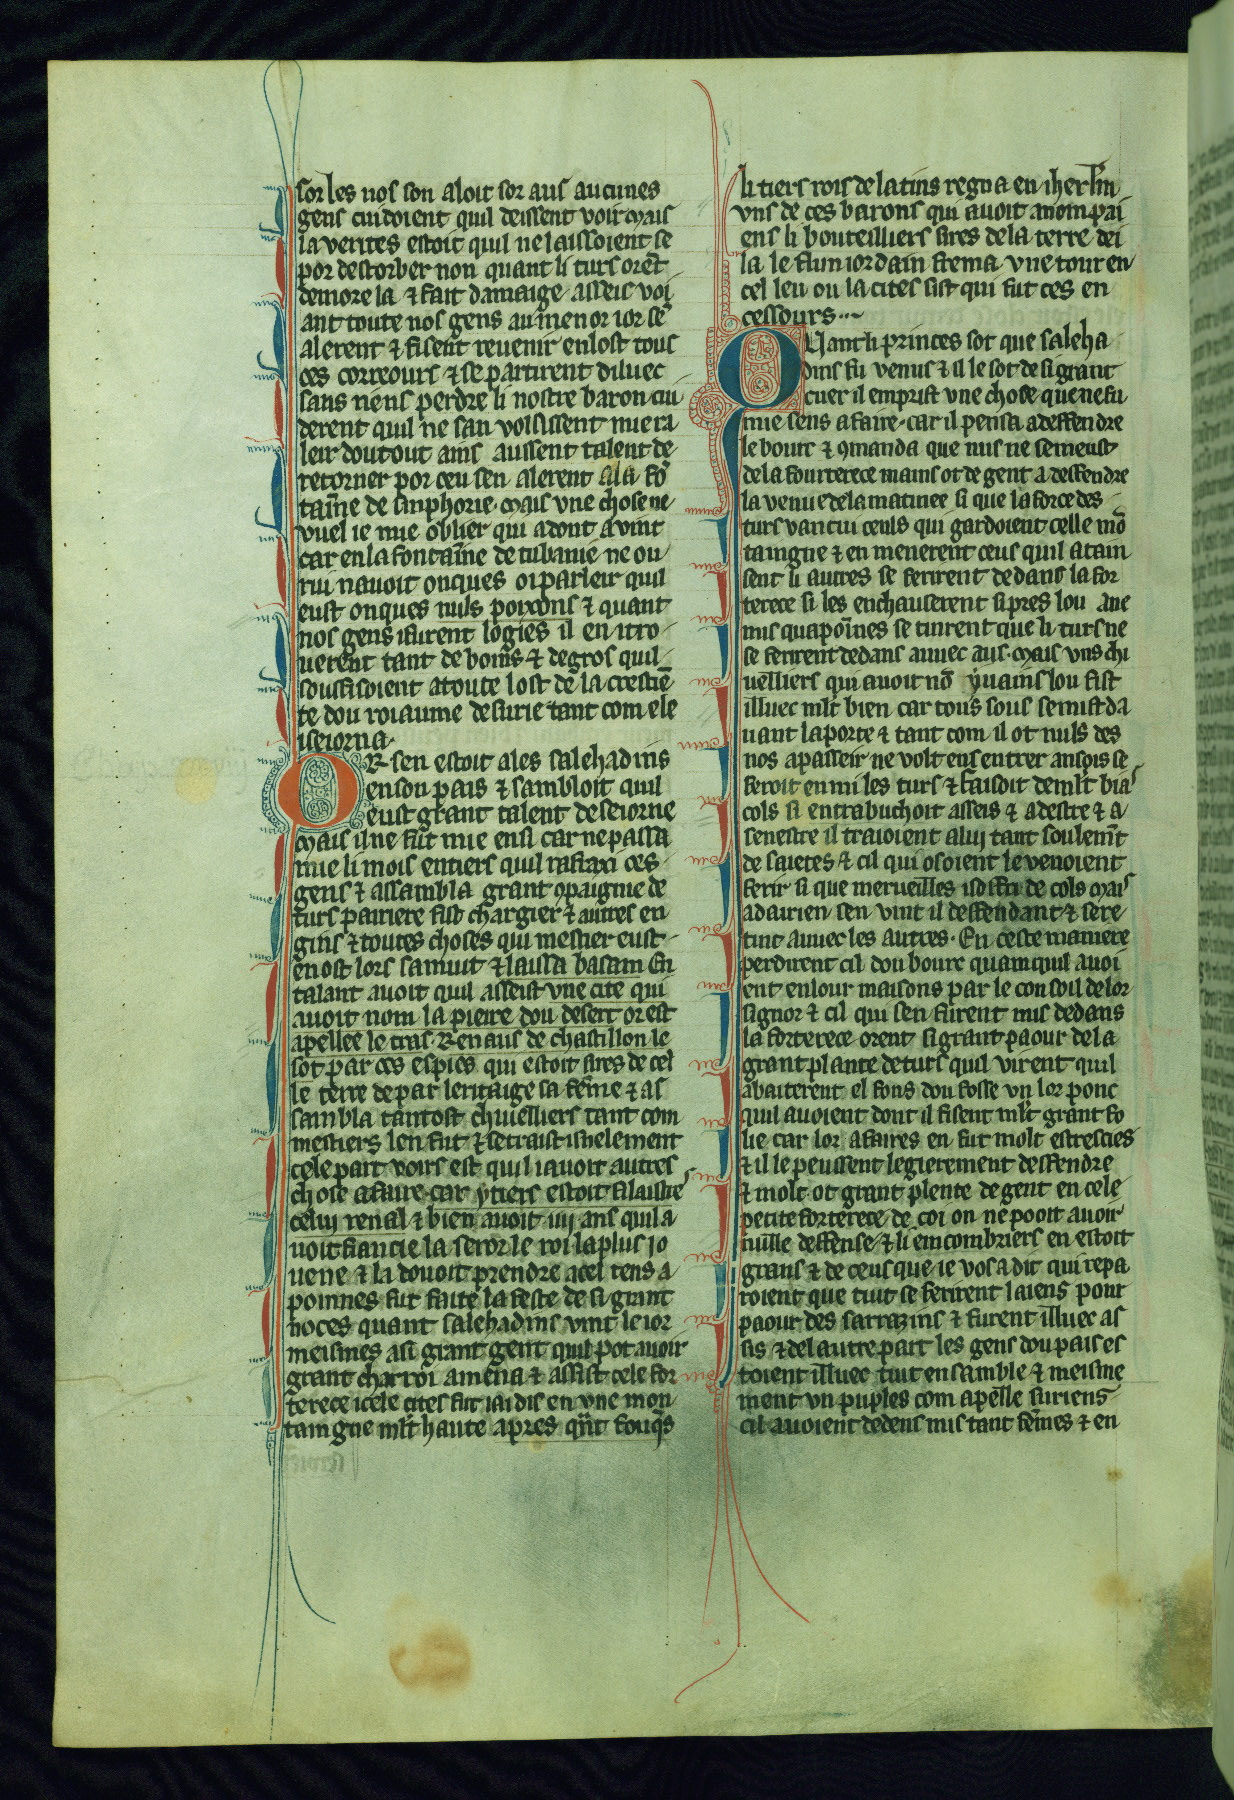 sor les nos son aloit sor aus aucunes
gens cuidoient quil deissent voir mais
la verites estoit quil ne laissoient se
por destorber non quant li turs orẽt
demore la ⁊ fait damaige asseis voi
ant toute nos gens au menor ior se
alerent ⁊ fisent revenir en lost tous
ces correours ⁊ se partirent diluec
sans riens perdre li nostre baron cui
derent quil ne san volsissent mie ra
leir dou tout ains aussent talent de
retorner por ceu sen alerent a la fõ
taĩne de simphorie. mais vne chose ne
vuel ie mie oblier qui adont avint
car en la fontaĩne de tubanie ne ou
rui navoit onques oi parleir quil
eust onques nuls poixons ⁊ quant
nos gens i furent logies il en i tro
verent tant de boins ⁊ de gros quil
soufisoient a toute lost de la crestiẽ
te dou roiaume de surie tant com ele
i seiorna.
OR sen estoit ales salehadins
en son pais ⁊ sambloit quil
eust grant talent de seiorne
mais il ne fut mie ensi car ne passa
mie li mois entiers quil rasranxi ces
gens ⁊ assambla grant ꝯpaignie de
turs pairiere fist chargier ⁊ autres en
gins ⁊ toutes choses qui mestier eust
en ost lors samuit ⁊ laissa basam En
talant avoit quil asseist vne cite qui
avoit nom la pieire dou desert or est
apellee le tras Renaus de chastillon le
sot par ces espies qui estoit sires de cel
le terre de par leritaige sa feme ⁊ as
sambla tantost chivelliers tant com
mestiers len fut ⁊ se traist isnelement
cele part voirs est quil i avoit autres
chose a faire car ytiers estoit filaistre
celui renal ⁊ bien avoit iiij ans quil a
voit fiancie la seror le roi la plus jo
vene ⁊ la douoit prendre a cel tens a
poinnes fut faite la feste de si grant
noces quant salehadins vint le ior
meismes a si grant gent quil pot avoir
grant charroi amena ⁊ assist cele for
terece icele cites fut iaidis en vne mon
taingne ml̃t haute apres qñt fouq̃s
li tiers rois de latins regna en iherl̃m
vns de ces barons qui avoit a nom pai
ens li bouteilliers sires de la terre dei
la le flun iordain ferma vne tour en
cel leu ou la cites sist qui fut ces en
cessours
Quant li princes sot que saleha
dins fu venus ⁊ il le sot de si grant
cuer il emprist vne chose que ne fu
mie sens a faire. car il pensa a deffendre
le bourc ⁊ ꝯmanda que nus ne se meust
de la fourterece mains ot de gent a deffendre
la venue de la matinee si que la force des
turs vancui ceuls qui gardoient celle mõ
taingne ⁊ en menerent ceus quil atain
sent li autres se ferirent dedans la for
terece si les enchauserent si pres lou ane
mis qua poĩnes se tinrent que li turs ne
se ferirent dedans avuec aus. mais vns chi
uelliers qui avoit nõ yuains lou fist
illuec ml̃t bien car tous sous se mist da
uant la porte ⁊ tant com il ot nuls des
nos a passeir ne volt ens entrer ansois se
feroit en mi les turs ⁊ faisoit de ml̃t biaˢ
cols si entrabuchoit asseis ⁊ a destre ⁊ a
senestre il traioient a luy tant soulemẽt
de saietes ⁊ cil qui osoient le venoient
ferir si que merveilles i soffri de cols maiˢ
a dairien sen vint il deffendant ⁊ se re
tint avuec les autres. En ceste maniere
perdirent cil dou bourc quamquil avoi
ent en lour maisons par le consoil de lor
signor ⁊ cil qui sen furent mis dedans
la forterece orent si grant paour de la
grant plante de turs quil virent quil
abaiterent el fons dou fosse vn lor ponc
quil avoient dont il fisent ml̃t grant fo
lie car lor afaires en fut molt estrescies
⁊ il le peussent legierement deffendre
⁊ molt ot grant plente de gent en cele
petite forterece de coi on ne pooit avoir
nulle deffense ⁊ li emcombriers en estoit
grans ⁊ de ceus que ie vos a dit qui repa
roient que tuit se ferirent laiens pour
paour des sarrazins ⁊ furent illuec as
sis ⁊ del autre part les gens dou pais es
toient illuec tuit ensamble ⁊ meisme
ment vn puples com apelle suriens
cil avoient dedens mis tant femes ⁊ en